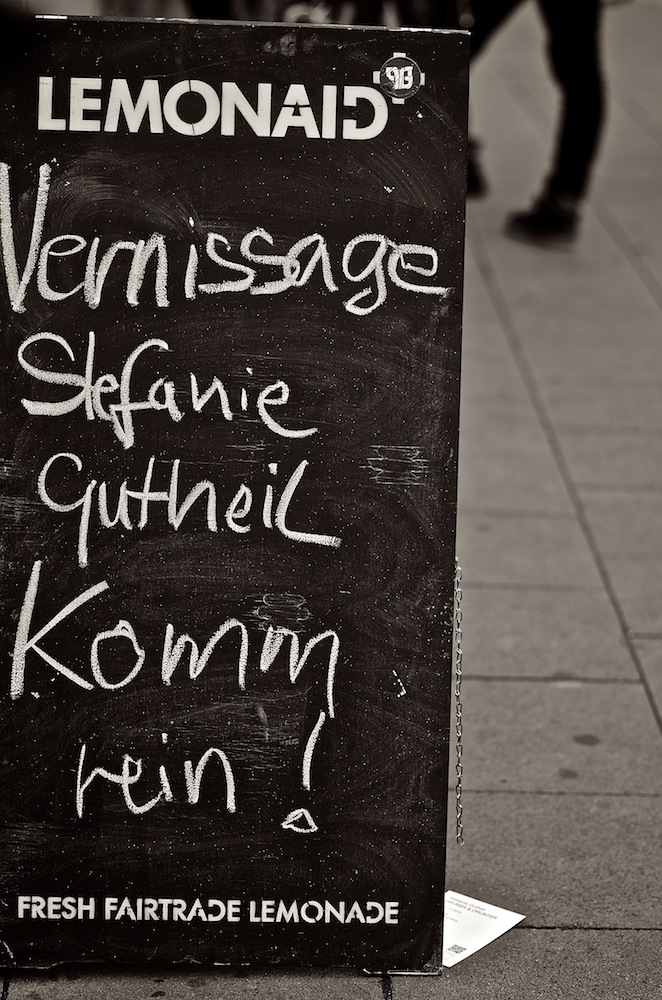 LEMONAID
Vernissage
Stefanie
Gutheil
Komm
rein!
FRESH FAIRTRADE LEMONADE